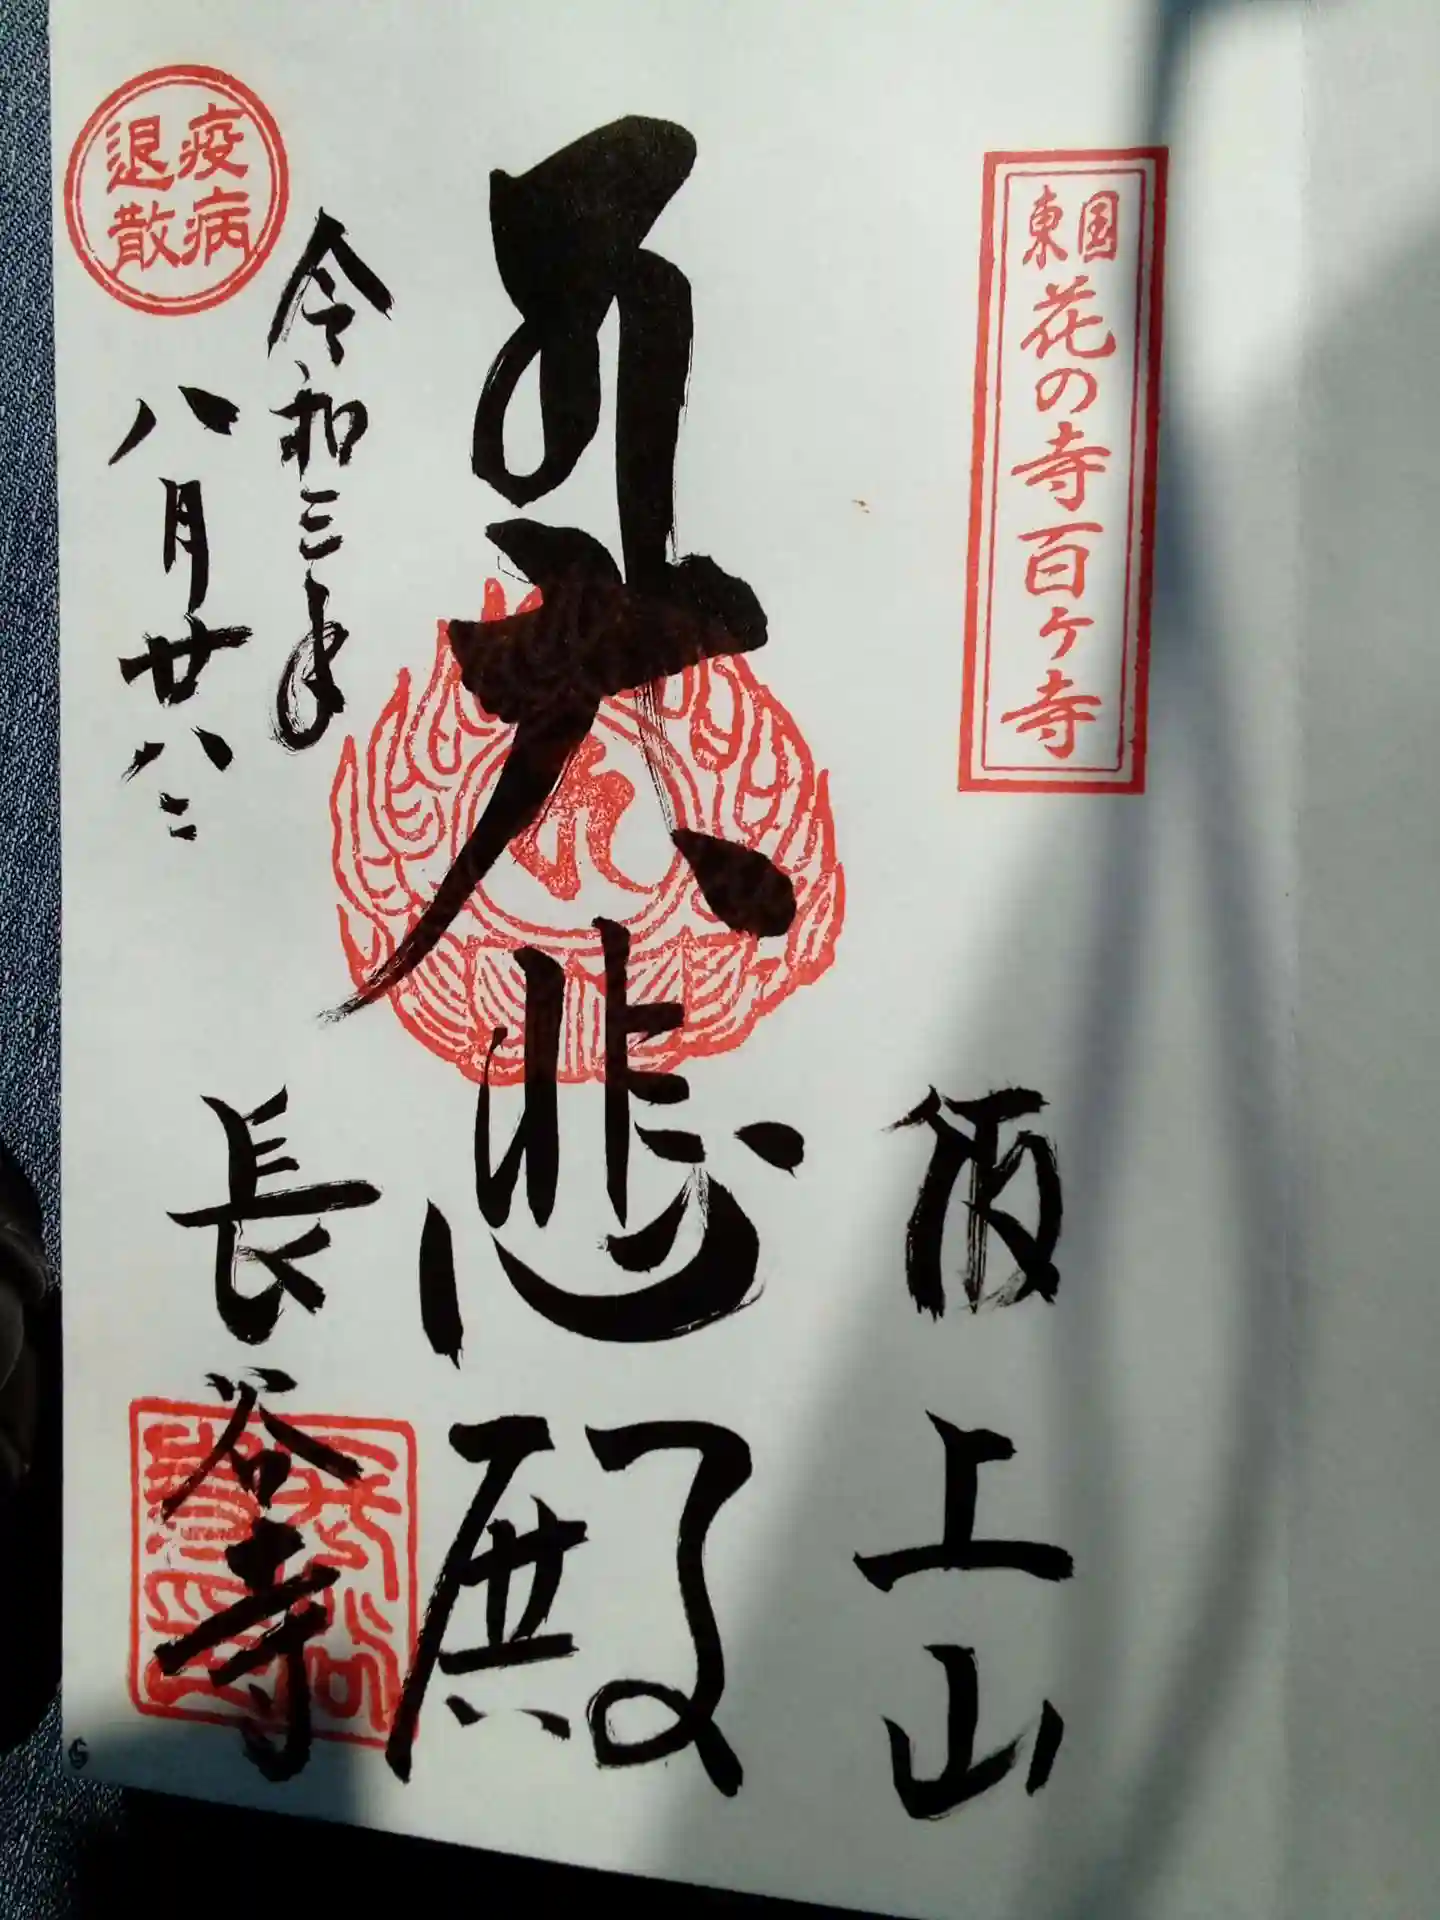 東国花の寺百ヶ寺
飯上山
大悲殿
令和三年
八月廿八日
長谷寺
疫病
退散